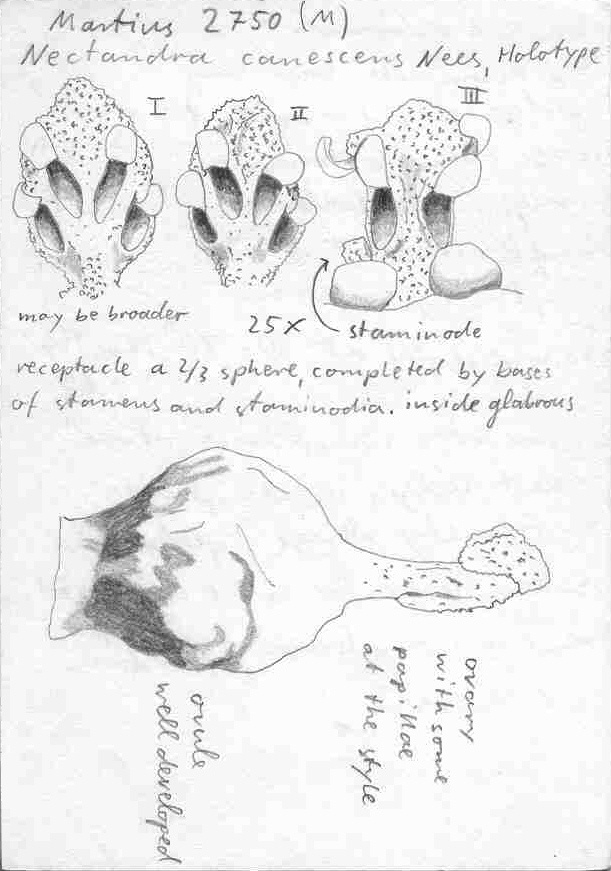 Martius 2750 (M)
Nectandra canescens Nees, Holotype
I
II
III
may be broader
25x
staminode
receptacle a 2/3 sphere, completed by bases
of stamens and staminodia. inside glabrous
ovary
with some
papillae
at the style
ovule
well developed